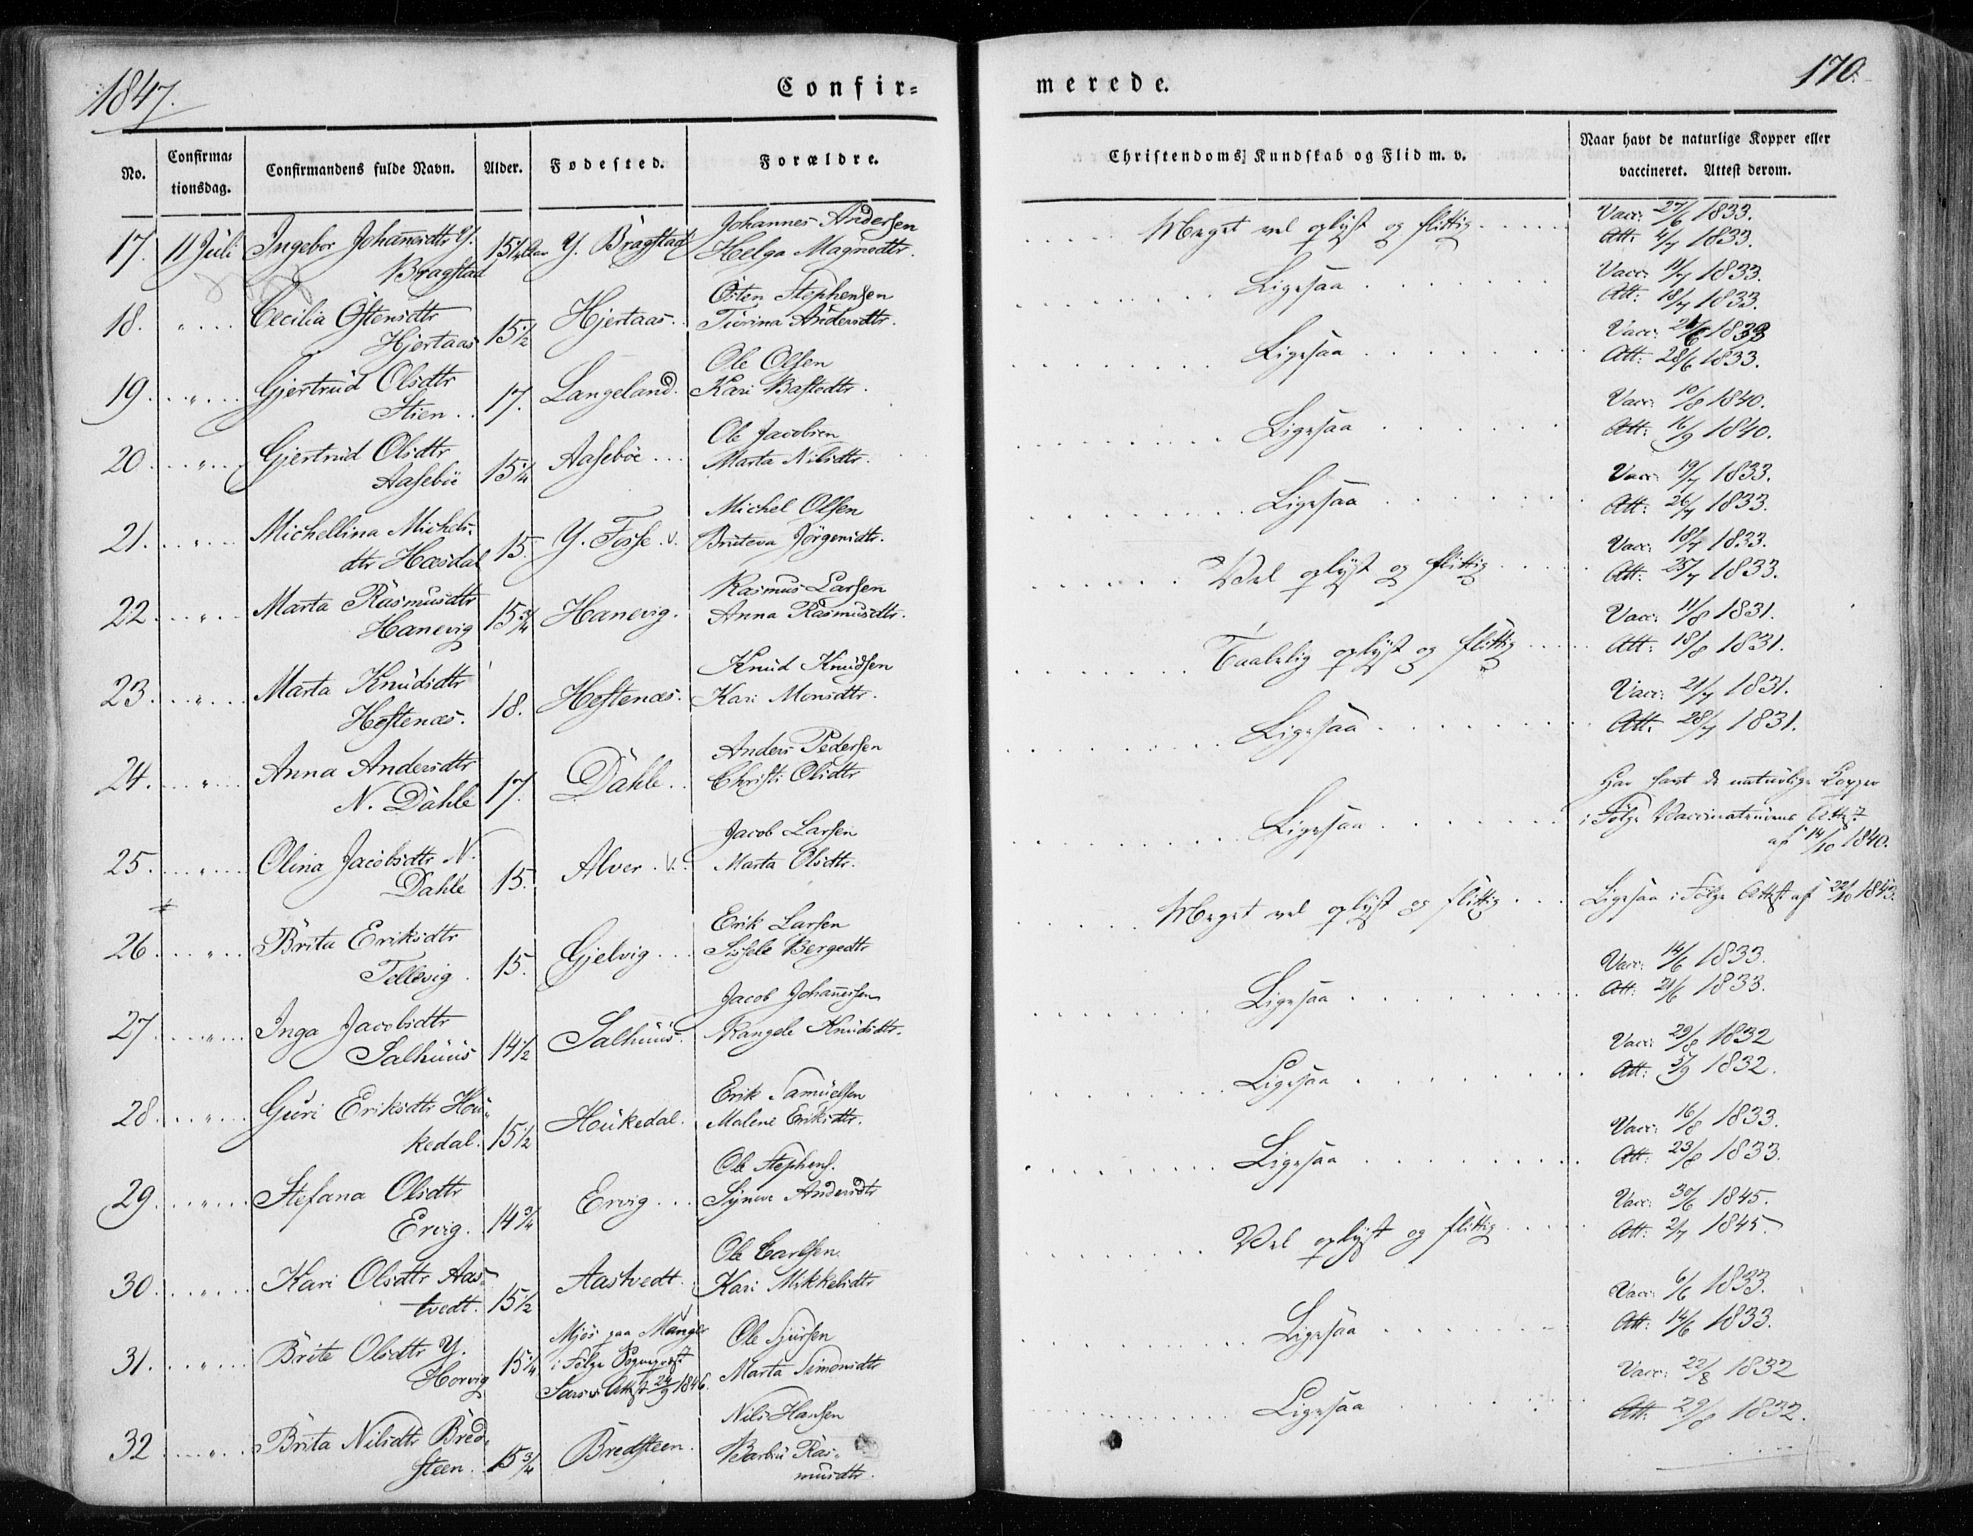 1847.
Confir=
merede.
170.
No.
Confirma:
tionsdag.
Confirmandens fulde Navn.
Alder.
Fødested.
Forældre.
Christendoms Kundskab og Flid m. v.
Naar havt de naturlige Kopper eller
vaccineret. Attest derom.
17. 11 Juli Ingebor Johanisdtr Y.
Bragstad
15 1/4 Aar Y. Bragstad
Johannes Andersen
Helga Magnedtr.
Meget vel oplyst og flittig
Vacc: 27/6 1833.
Att: 4/7 1833.
18. " Cecilia Østensdtr
Hjertaas
15 1/2 Hjertaas.
Østen Stephensen
Turina Andersdtr.
Ligesaa
Vacc: 11/7 1833.
Att: 18/7 1833.
19. " Gjertrud Olsdtr
Stien.
17. Langeland.
Ole Olsen
Kari Bastedtr.
Ligesaa
Vacc: 21/6 1833
Att: 28/6 1833.
20. " Gjertrud Olsdtr
Aasebøe
15 1/4 Aasebøe
Ole Jacobsen
Marta Nilsdtr.
Ligesaa
Vacc: 10/8 1840.
Att: 16/9 1840.
21. " Michellina Michels-
dtr Hæsdal
15. Y. Fosse. v.
Michel Olsen
Briteva Jørgensdtr.
Ligesaa
Vacc: 19/7 1833.
Att: 26/7 1833.
22. " Marta Rasmusdtr
Hanevig
15 3/4 Hanevig.
Rasmus Larsen
Anna Rasmusdtr.
Vel oplyst og flittig
Vacc: 18/7 1833.
Att: 25/7 1833.
23. " Marta Knudsdtr
Hestenæs.
18. Hestenæs.
Knud Knudsen
Kari Monsdtr.
Taalelig oplyst og flittig
Vacc: 11/8 1831.
Att: 18/8 1831.
24. " Anna Andersdtr
N. Dahle
17. Dahle.
Anders Pedersen
Christi Olsdtr
Ligesaa
Vacc: 21/7 1831.
Att. 28/7 1831.
25. " Olina Jacobsdtr N.
Dahle
15. Alver. v.
Jacob Larsen
Marta Olsdtr.
Ligesaa
Har havt de naturlige Kopper
i Følge Vaccinateurens Attest
af 14/10 1840.
26. " Brita Eriksdtr
Tellevig.
15. Gjelvig
Erik Larsen
Sissele Bergedtr
Meget vel oplyst og flittig
Ligesaa i Følge Attest af 22/10 1843.
27. " Inga Jacobsdtr
Salhuus
14 1/2 Salhuus.
Jacob Johanesen
Rangele Knudsdtr.
Ligesaa
Vacc: 14/6 1833.
Att: 21/6 1833.
28. " Guri Eriksdtr Hou-
kedal.
15 1/2 Houkedal.
Erik Samuelsen
Malene Eriksdtr.
Ligesaa
Vacc: 29/8 1832
Att: 5/9 1832.
29. " Stefana Olsdtr
Ervig.
14 3/4 Ervig
Ole Stephens.
Syneve Andersdtr
Ligesaa
Vacc: 16/8 1833.
Att: 23/8 1833.
30. " Kari Olsdtr Aas-
tvedt.
15 1/2 Aastvedt.
Ole Carlsen.
Kari Mikkelsdtr
Vel oplyst og flittig
Vacc: 30/6 1845.
Att: 2/7 1845
31. " Brite Olsdtr Y.
Horvig
15 1/4 Mjøs paa Manger
i Følge Sognepræst
Sars's Attest 24/9 1846.
Ole Sjursen
Marta Simonsdtr
Ligesaa
Vacc: 6/6 1833.
Att: 14/6 1833.
32 " Brita Nilsdtr Bred-
steen.
15 3/4 Bredsteen.
Nils Hansen
Barbru Ras-
musdtr.
Ligesaa
Vacc: 22/8 1832
Att: 29/8 1832.